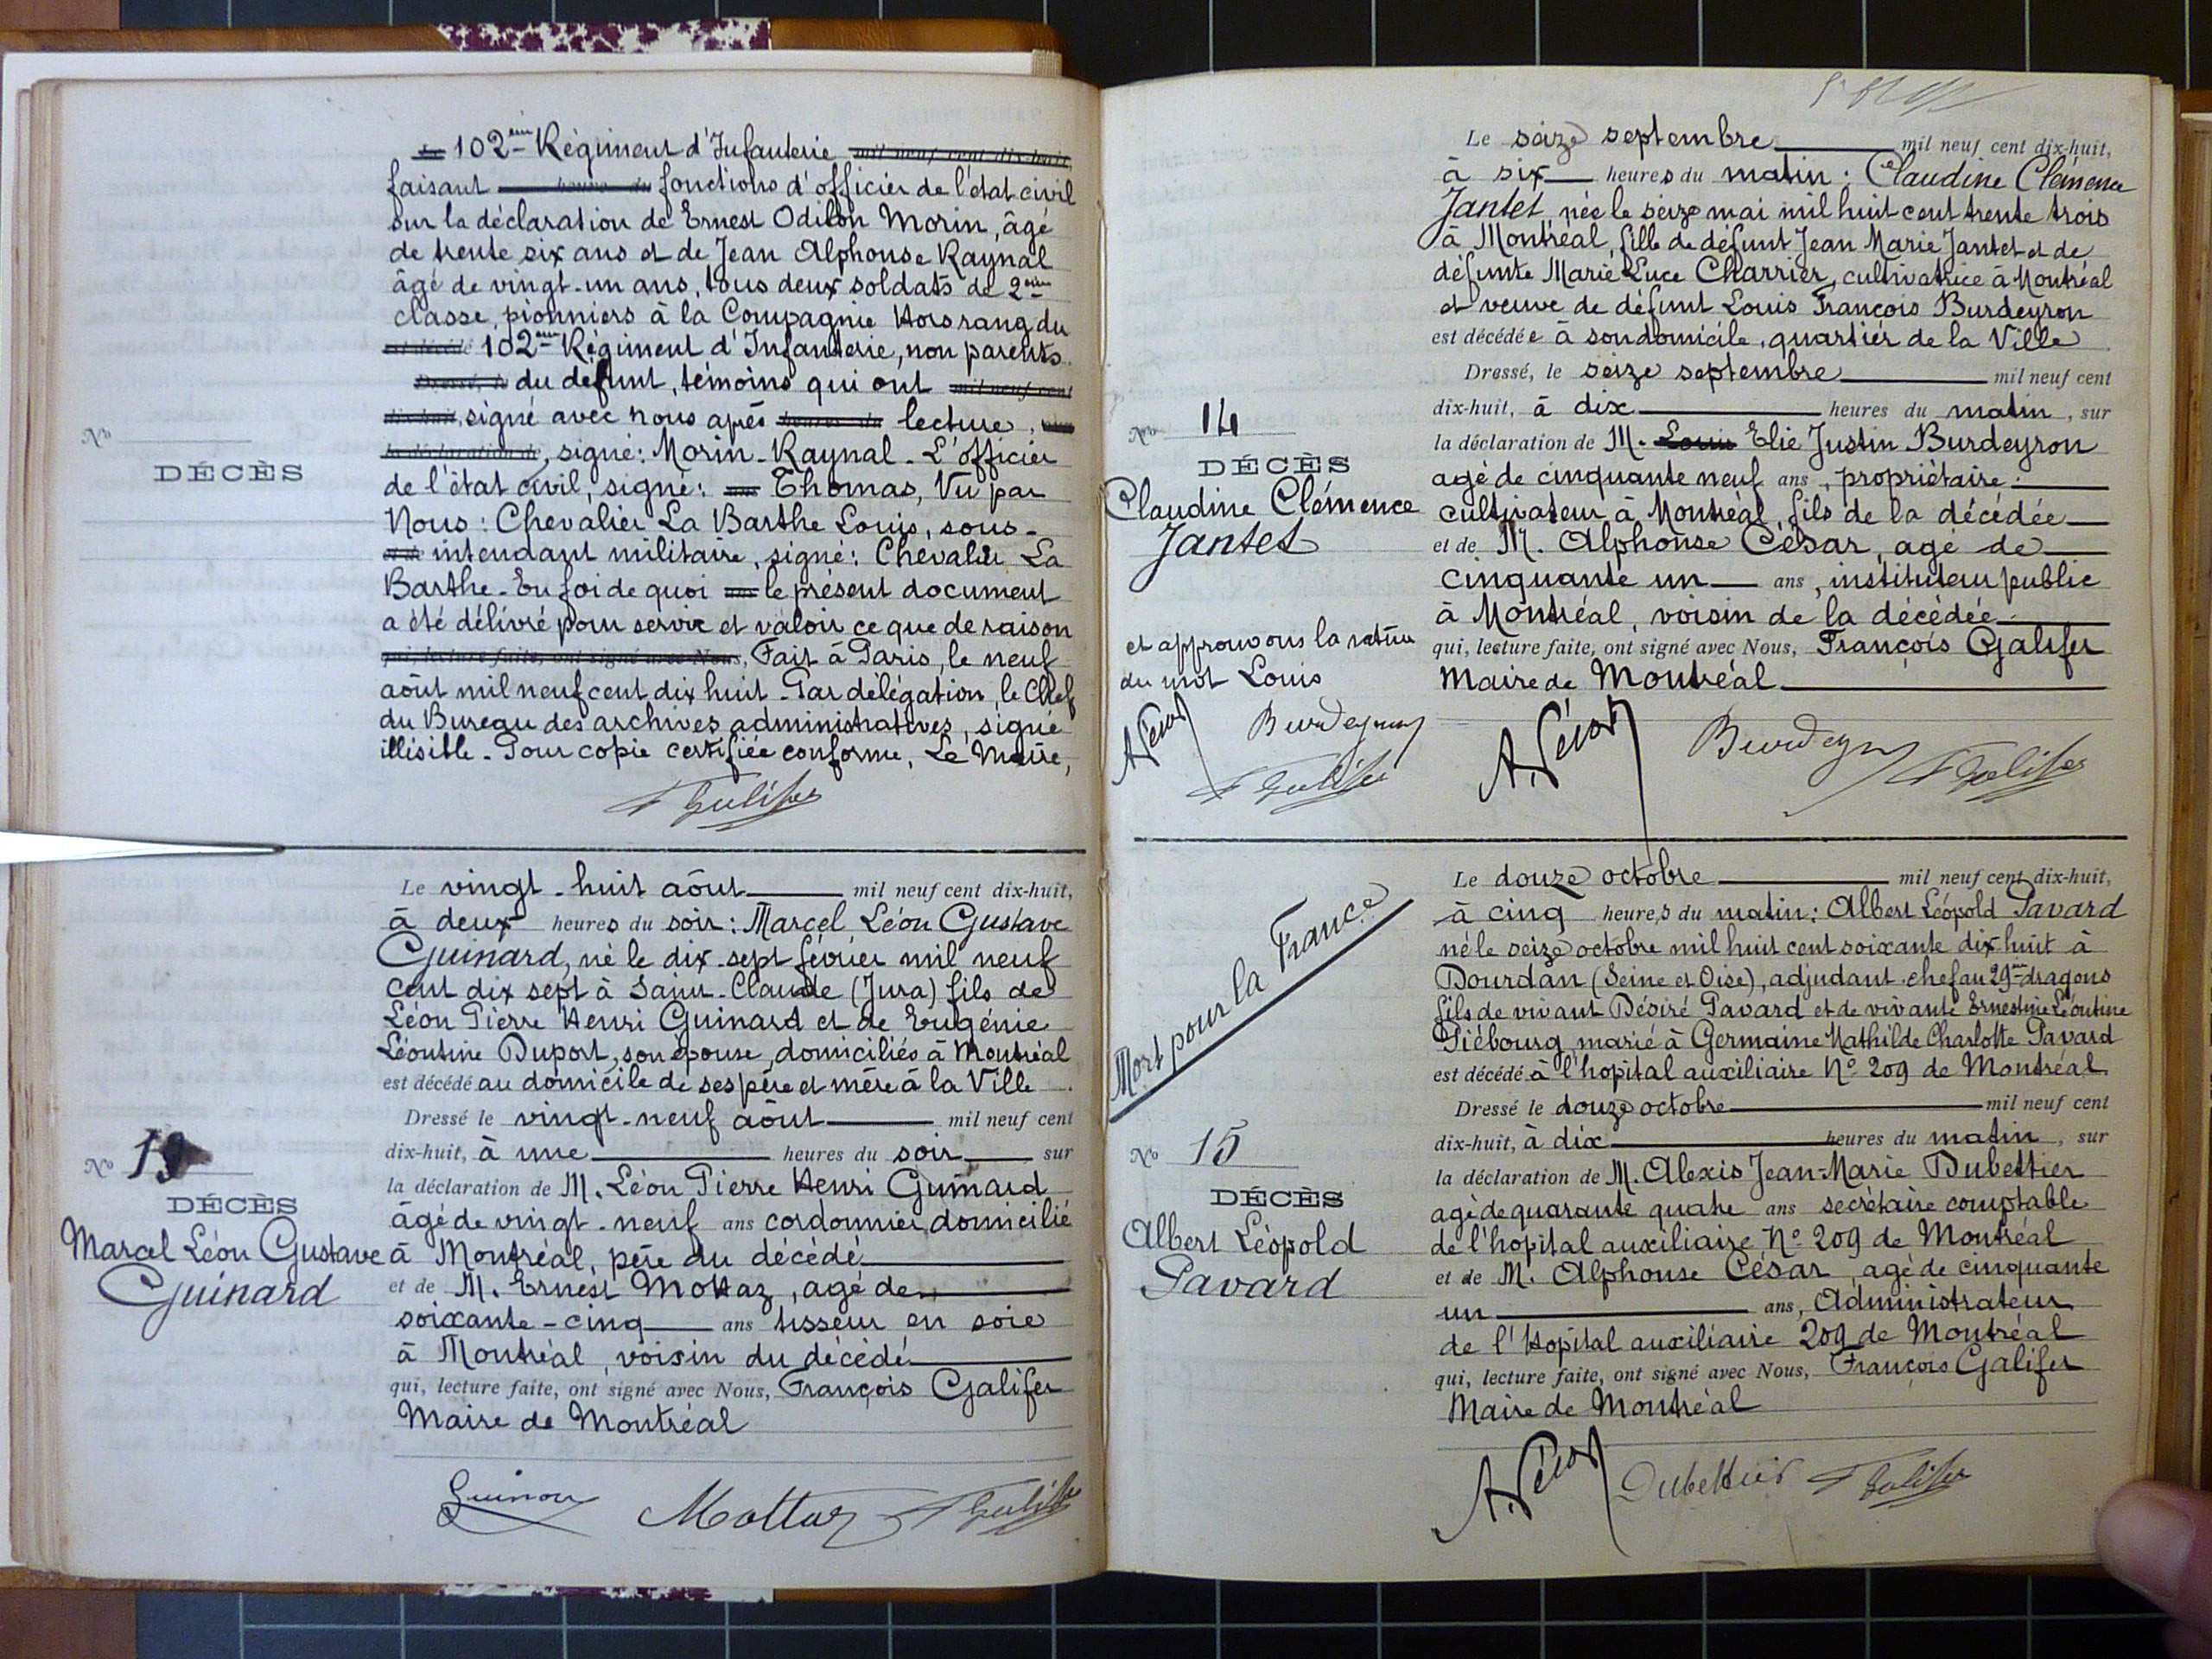 102ème Régiment d'Infanterie mil neuf cent dix-huit,
faisant heures du fonctions d'officier de l'état civil
sur la déclaration de Ernest Odilon Morin, âgé
de trente six ans et de Jean Alphonse Raynal
âgé de vingt-un ans, tous deux soldats de 2ème
classe, pionniers à la Compagnie Hors rang du
est décédé 102ème Régiment d'Infanterie, non parents
Dressé, le du défunt, témoins qui ont mil neuf cent
dix-huit, signé avec nous après heures du lecture, sur
la déclaration de, signé: Morin - Raynal - L'officier
de l'état civil, signé: Thomas, Vu par
Nous: Chevalier La Barthe Louis, sous-
et de intendant militaire, signé: Chevalier La
Barthe - En foi de quoi ans le présent document
a été délivré pour servir et valoir ce que de raison
qui, lecture faite, ont signé avec Nous, Fait à Paris, le neuf
août mil neuf cent dix huit - Par délégation, le Chef
du Bureau des archives administratives, signé
illisible - Pour copie certifiée conforme, Le Maire,
F Galifer
No
DÉCÈS
Le vingt-huit août mil neuf cent dix-huit,
à deux heures du soir: Marcel Léon Gustave
Guinard, né le dix-sept février mil neuf
cent dix sept à Saint-Claude (Jura) fils de
Léon Pierre Henri Guinard et de Eugénie
Léontine Duport, son épouse, domiciliés à Montréal
est décédé au domicile de ses père et mère à la Ville.
Dressé le vingt-neuf août mil neuf cent
dix-huit, à une heures du soir sur
la déclaration de M. Léon Pierre Henri Guinard
âgé de vingt-neuf ans cordonnier domicilié
à Montréal, père du décédé
et de M. Ernest Mottaz, agé de
soixante-cinq ans tisseur en soie
à Montréal, voisin du décédé
qui, lecture faite, ont signé avec Nous, François Galifer
Maire de Montréal
No 13
DÉCÈS
Marcel Léon Gustave
Guinard
Guinard Mottaz F Galifer
Le seize septembre mil neuf cent dix-huit,
à six heures du matin: Claudine Clémence
Jantet, née le seize mai mil huit cent trente trois
à Montréal, fille de défunt Jean Marie Jantet et de
défunte Marie Luce Charrier, cultivatrice à Montréal
et veuve de défunt Louis François Burdeyron
est décédée à son domicile, quartier de la Ville
Dressé, le seize septembre mil neuf cent
dix-huit, à dix heures du matin, sur
la déclaration de M. Louis Elie Justin Burdeyron
agé de cinquante neuf ans, propriétaire
cultivateur à Montréal, fils de la décédée
et de M. Alphonse César, agé de
cinquante un ans, instituteur public
à Montréal, voisin de la décédée
qui, lecture faite, ont signé avec Nous, François Galifer
Maire de Montréal
No 14
DÉCÈS
Claudine Clémence
Jantet
et approuvons la rature
du mot Louis
A. César Burdeyron
F Galifer
A. César Burdeyron F Galifer
Le douze octobre mil neuf cent dix-huit,
à cinq heures du matin: Albert Léopold Pavard
né le seize octobre mil huit cent soixante dix-huit à
Dourdan (Seine et Oise), adjudant-chef au 29ème dragons
fils de vivant Désiré Pavard et de vivante Ernestine Léontine
Piébourg, marié à Germaine Mathilde Charlotte Pavard
est décédé à l'hopital auxiliaire No 209 de Montréal
Dressé le douze octobre mil neuf cent
dix-huit, à dix heures du matin, sur
la déclaration de M. Alexis Jean-Marie Dubettier
agé de quarante quatre ans secrétaire comptable
de l'hopital auxiliaire No 209 de Montréal
et de M. Alphonse César, agé de cinquante
un ans, Administrateur
de l'Hopital auxiliaire 209 de Montréal
qui, lecture faite, ont signé avec Nous, François Galifer
Maire de Montréal
Mort pour la France
No 15
DÉCÈS
Albert Léopold
Pavard
A. César Dubettier F Galifer